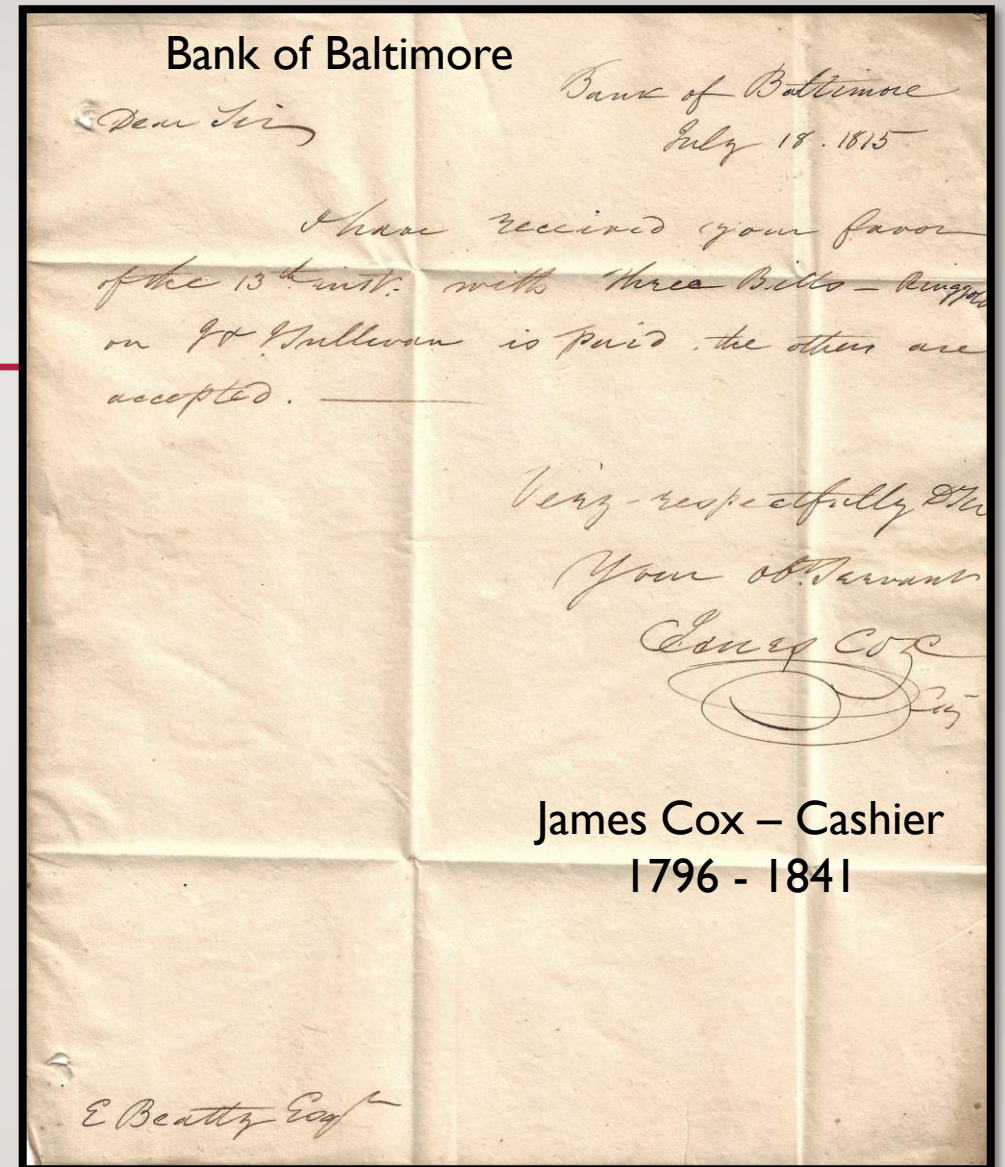 Bank of Baltimore
Bank of Baltimore
July 18. 1815
Dear Sir
I have received your favor
of the 13th inst. with three Bills – Ringgold
on J & Sullivan is paid. the others are
accepted.
Very respectfully D Sir
Your obt. Servant
James Cox
James Cox – Cashier
1796 - 1841
E Beatty Esqr